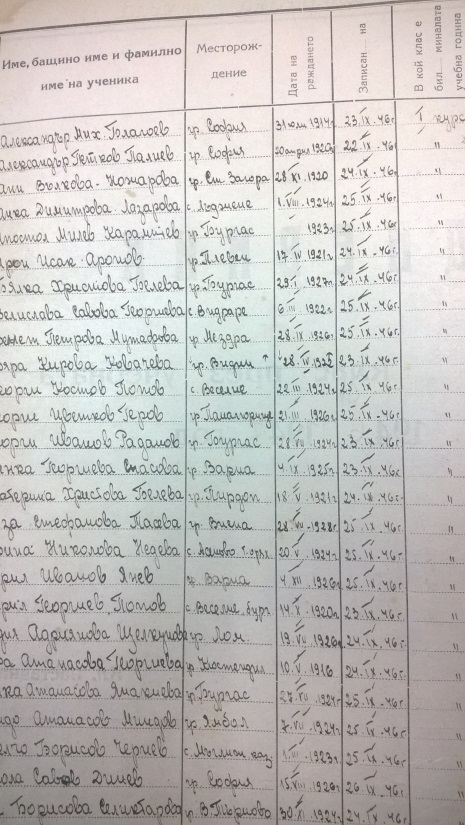 Име, бащино име и фамилно име на ученика Месторождение Дата на раждането Записан на В кой клас е бил миналата учебна година
Александър Мих. Благоев гр. София 31 юли 1914г. 23.IX.46г. I курс
Александър Петков Палиев гр. София 20 април 22.IX.46г. "
Вълкова - Ножарова гр. Ст. Загора 28 XI.1920 24.IX.46г. "
Димитрова Лазарова с. Лъджене 1.VIII.1924г. 25.IX.46г. "
Апостол Милев 1923г. гр. Бургас 25.IX.46г. "
Исак гр. Плевен 17.IV.1921г. 24.IX.46г. "
Христова Белева гр. Бургас 29.I.1927г. 24.IX.46г. "
Велислава Савова Георгиева с. Видраре 6 III 1922г. 25.IX.46г. "
Петрова Мутафова гр. Мездра 28.IX.1926г. 25.IX.46г. "
Кирова Ковачева гр. Видин 28.IV. 23.IX.46г. "
Георги Костов Попов с. Веселие 22 III.1924г. 25.IX.46г. "
Георги Цветков Геров гр. Панагюрище 21.III.1926г. 25.IX.46г. "
Георги Иванов Раданов гр. Бургас 28 VII.1924г. 23.IX.46г. "
Георгиева Спасова гр. Варна 4.IX.1925г. 23.IX.46г. "
Катерина Христова Белева гр. Пирдоп 18.V.1921г. 24.IX.46г. "
Стефанова Тасева гр. Виена 28.VI.1928г. 25.IX.46г. "
Николова Недева с. 20 V.1924г. 25.IX.46г. "
Кирил Иванов Янев гр. Варна 4 XII.1926г. 25.IX.46г. "
Кирил Георгиев Попов с. Веселие бург. 14.X.1920г. 23.IX.46г. "
Адриянова Щелкунова гр. Лом 19.VII.1926г. 24.IX.46г. "
Атанасова Георгиева гр. Кюстендил 10.V.1916 24.IX.46г. "
Атанасова Ямалиева гр. Бургас 27.VII.1924г. 25.IX.46г. "
Атанасов Миндов гр. Ямбол 7.VII.1924г. 25.IX.46г. "
Борисов Чернев с. Мъглиж каз. 1.III.1923г. 25.IX.46г. "
Никола Савов Динев гр. София 15.VIII.1926г. 26.IX.46г. "
Борисова Селиктарова гр. В. Търново 30.XI.1924г. 24.IX.46г. "